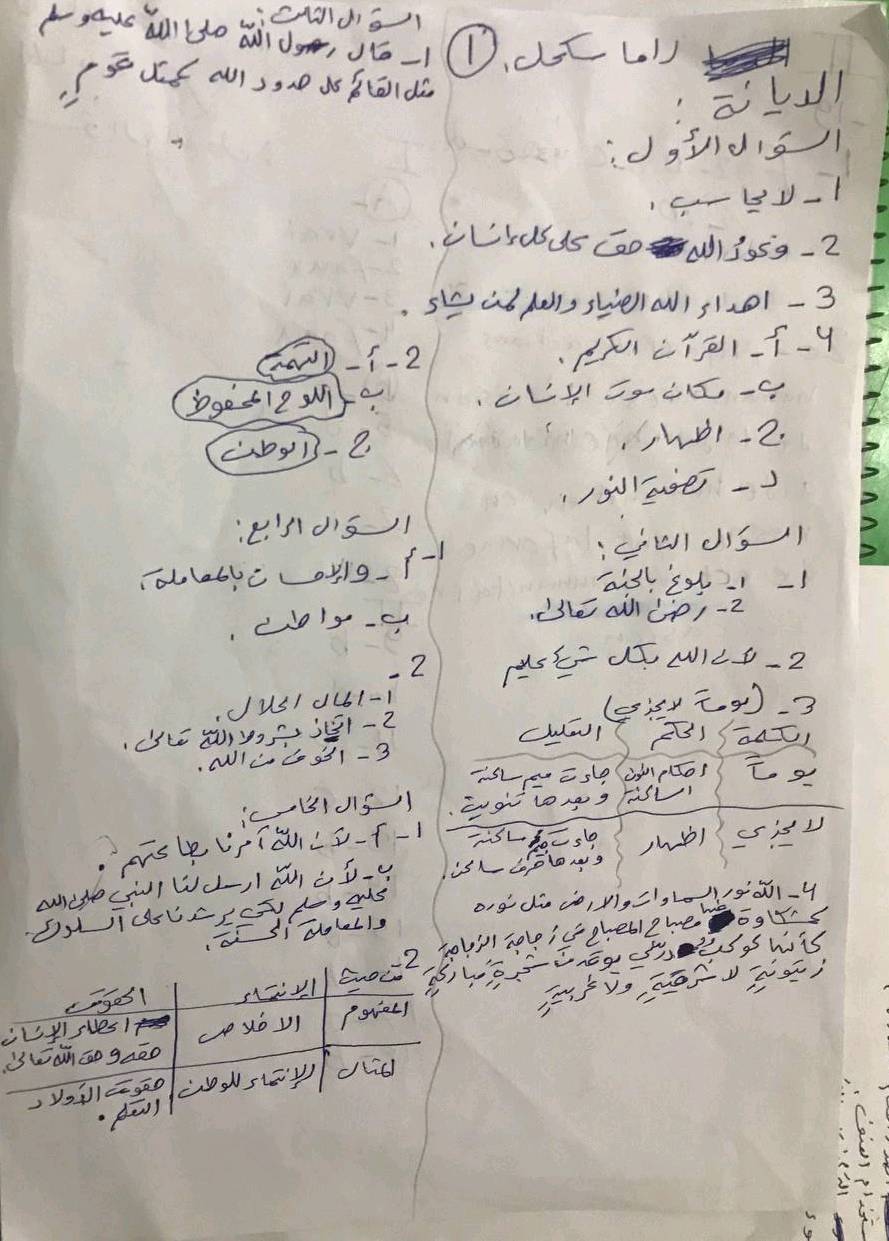 راما سكحل. ①
الديانة :
السؤال الأول :
1- لا يحاسب .
2- وعودُ الله حق على كل إنسان .
3- اهداء الله الضياء والعلم لمن يشاء .
4- أ- القرآن الكريم .
ب- مكان موت الإنسان .
ج- اظهار .
د- تصفية النور .
السؤال الثاني :
1- 1- بلوغ بالجنة
2- رضى الله تعالى.
2- لأن الله بكل شيء عليم
3- (يوماً لا يجزي)
الكلمة الحكم التعليل
يوماً احكام النون الساكنة جاءت ميم ساكنة وبعدها تنوين .
لا يجزي اظهار جاءت ساكنة وبعدها حرف ساكن .
4- الله نور السماوات والارض مثل نوره
كمشكاة فيها مصباح المصباح في زجاجة الزجاجة
كأنها كوكب دريّ يوقد من شجرةٍ مباركةٍ
زيتونةٍ لا شرقيةٍ ولا غربيةٍ
السؤال الثالث :
1- قال رسول الله صلى الله عليه وسلم
مثل القائم على حدود الله كمثل قومٍ
2- أ- التهمة
ب- اللوح المحفوظ
ج- الوطن
السؤال الرابع :
1- أ- والإحسان بالمعاملة .
ب- مواطن .
2-
1- المال الحلال .
2- اتخاذ بشروط الله تعالى .
3- الخوف من الله .
السؤال الخامس :
1- أ- لأن الله أمرنا بطاعتهم .
ب- لأن الله ارسل لنا النبي صلى الله
عليه وسلم لكي يرشدنا على السلوك
والمعاملة الحسنة .
2 من حيث الإنتماء الحقوق
المفهوم الاخلاص اعطاء الإنسان
حقه وحق الله تعالى.
المثال الإنتماء للوطن حقوق الأولاد
التعلم .